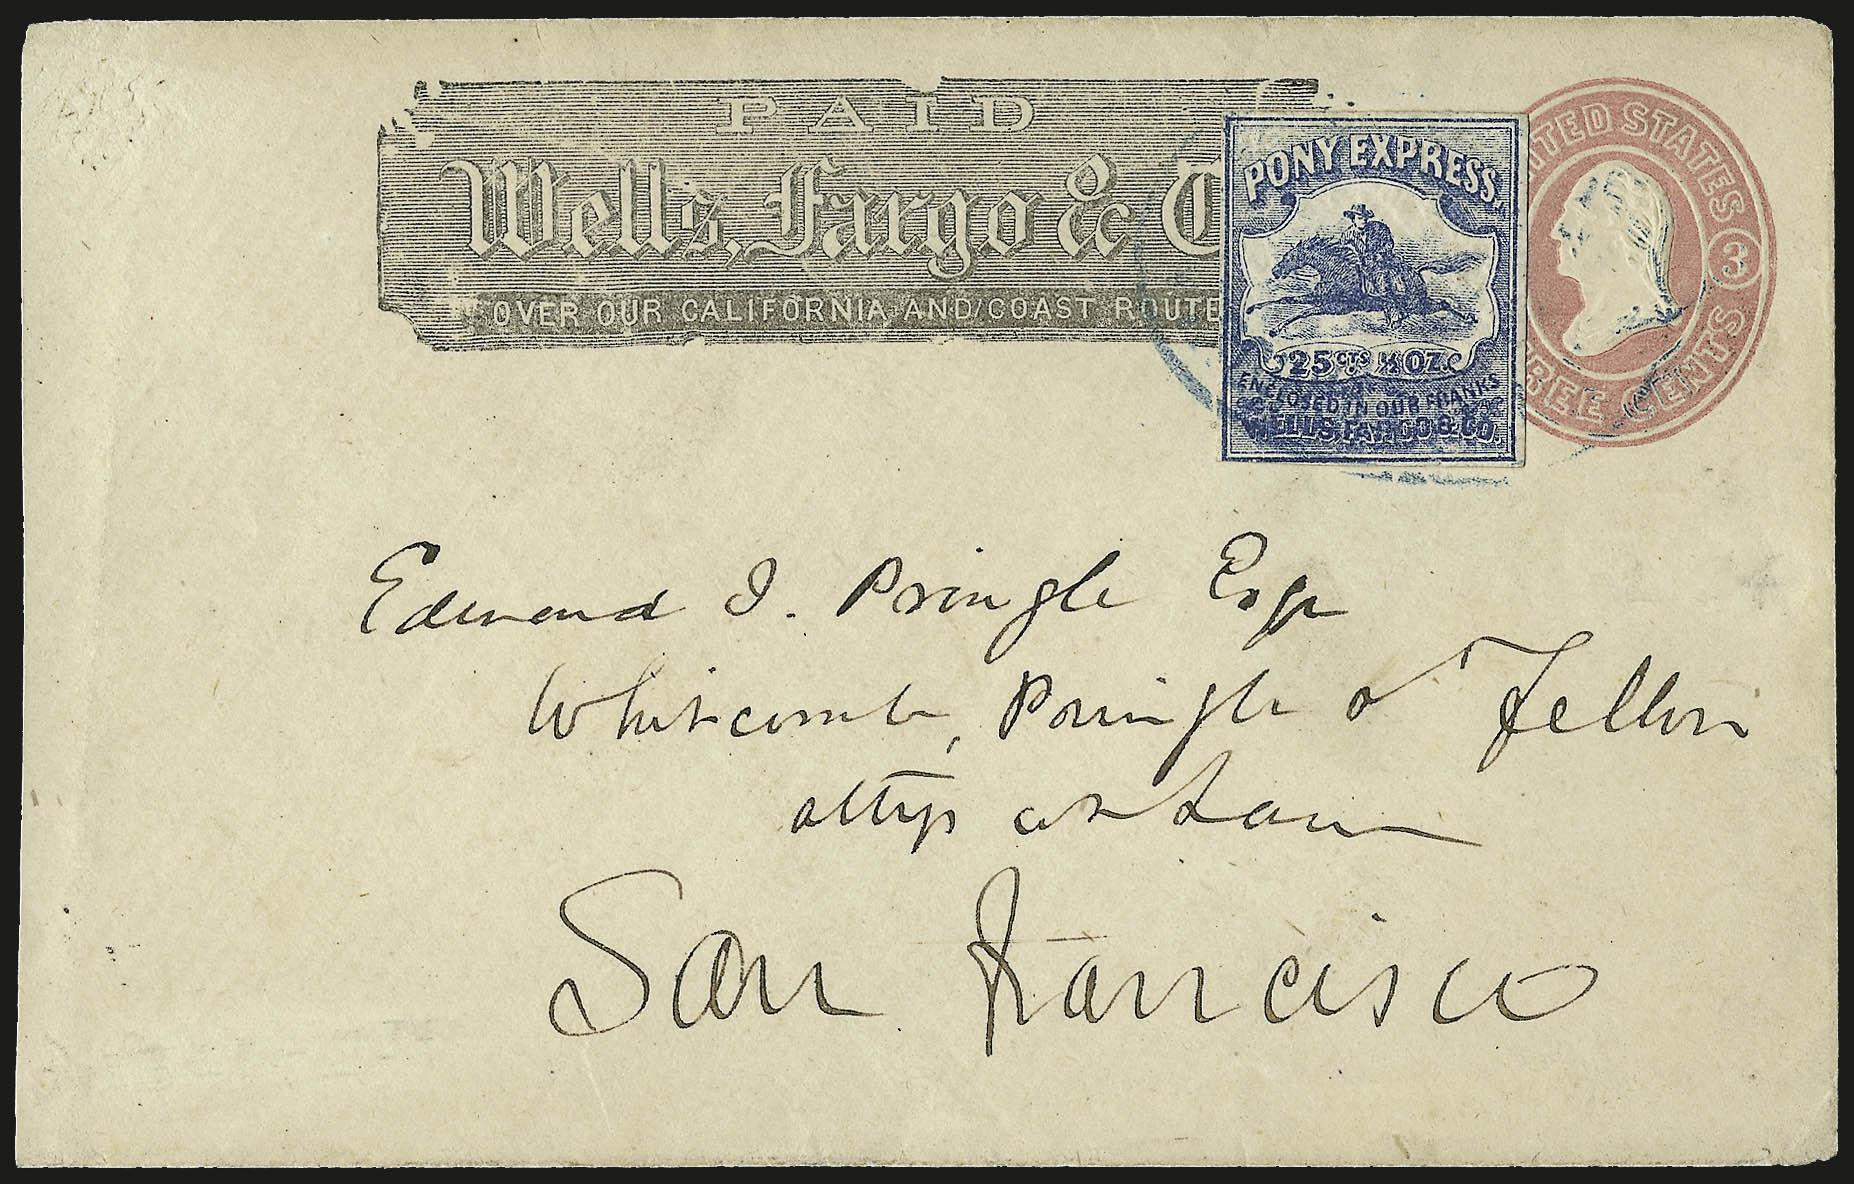 PAID
Wells, Fargo & C
OVER OUR CALIFORNIA AND COAST ROUTE
PONY EXPRESS.
25 CTS ½ OZ.
ENCLOSED IN OUR FRANKS
WELLS, FARGO & CO.
ITED STATES
3
REE CENTS
Edward J. Pringle Esqr
Whitcomb, Pringle & Felton
attys at Law
San Francisco